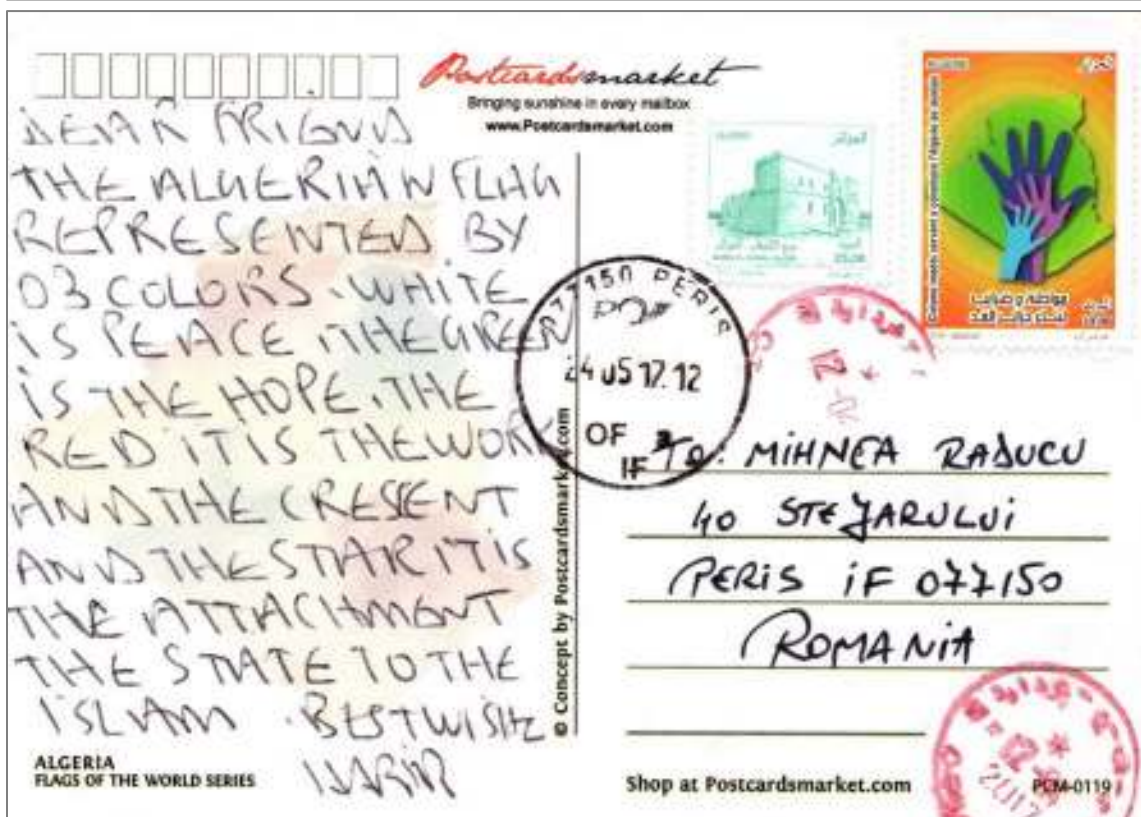 Postcardsmarket
Bringing sunshine in every mailbox
www.Postcardsmarket.com
DEAR FRIGND
THE ALGERIAN FLAG
REPRESENTED BY
03 COLORS. WHITE
IS PEACE, THE GREEN
IS THE HOPE, THE
RED IT IS THE WORK
AND THE CRESENT
AND THE STAR IT IS
THE ATTACHMENT
THE STATE TO THE
ISLAM. BEST WISHE
ALGERIA
FLAGS OF THE WORLD SERIES
© Concept by Postcardsmarket.com
ALGERIE
الجزائر
مواطنة و ضرائب
لبناء جزائر الغد
077150 PERIS
24 05 17.12
OF
IF
TO: MIHNEA RADUCU
40 STEJARULUI
PERIS IF 077150
ROMANIA
Shop at Postcardsmarket.com
PCM-0119